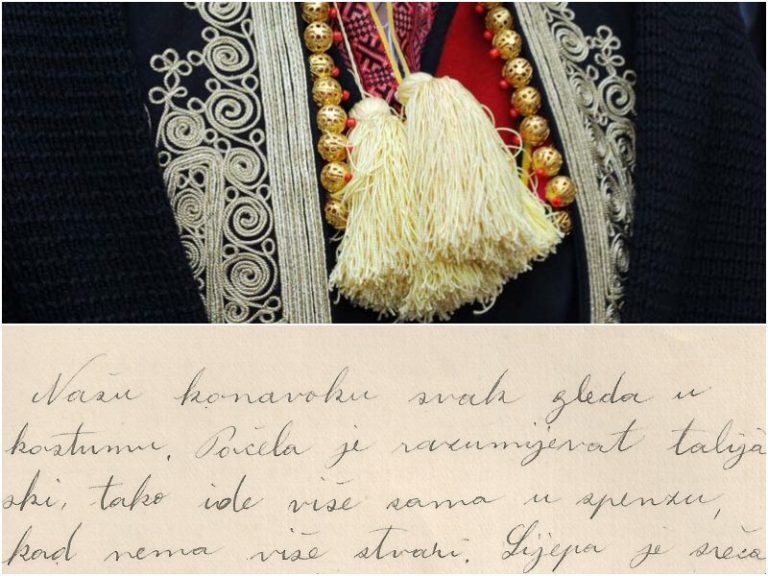 Našu konavoku svak gleda u
kostumu. Počela je razumijevat talija
ski, tako ide više sama u spenzu,
kad nema više stvari. Lijepa je sreča